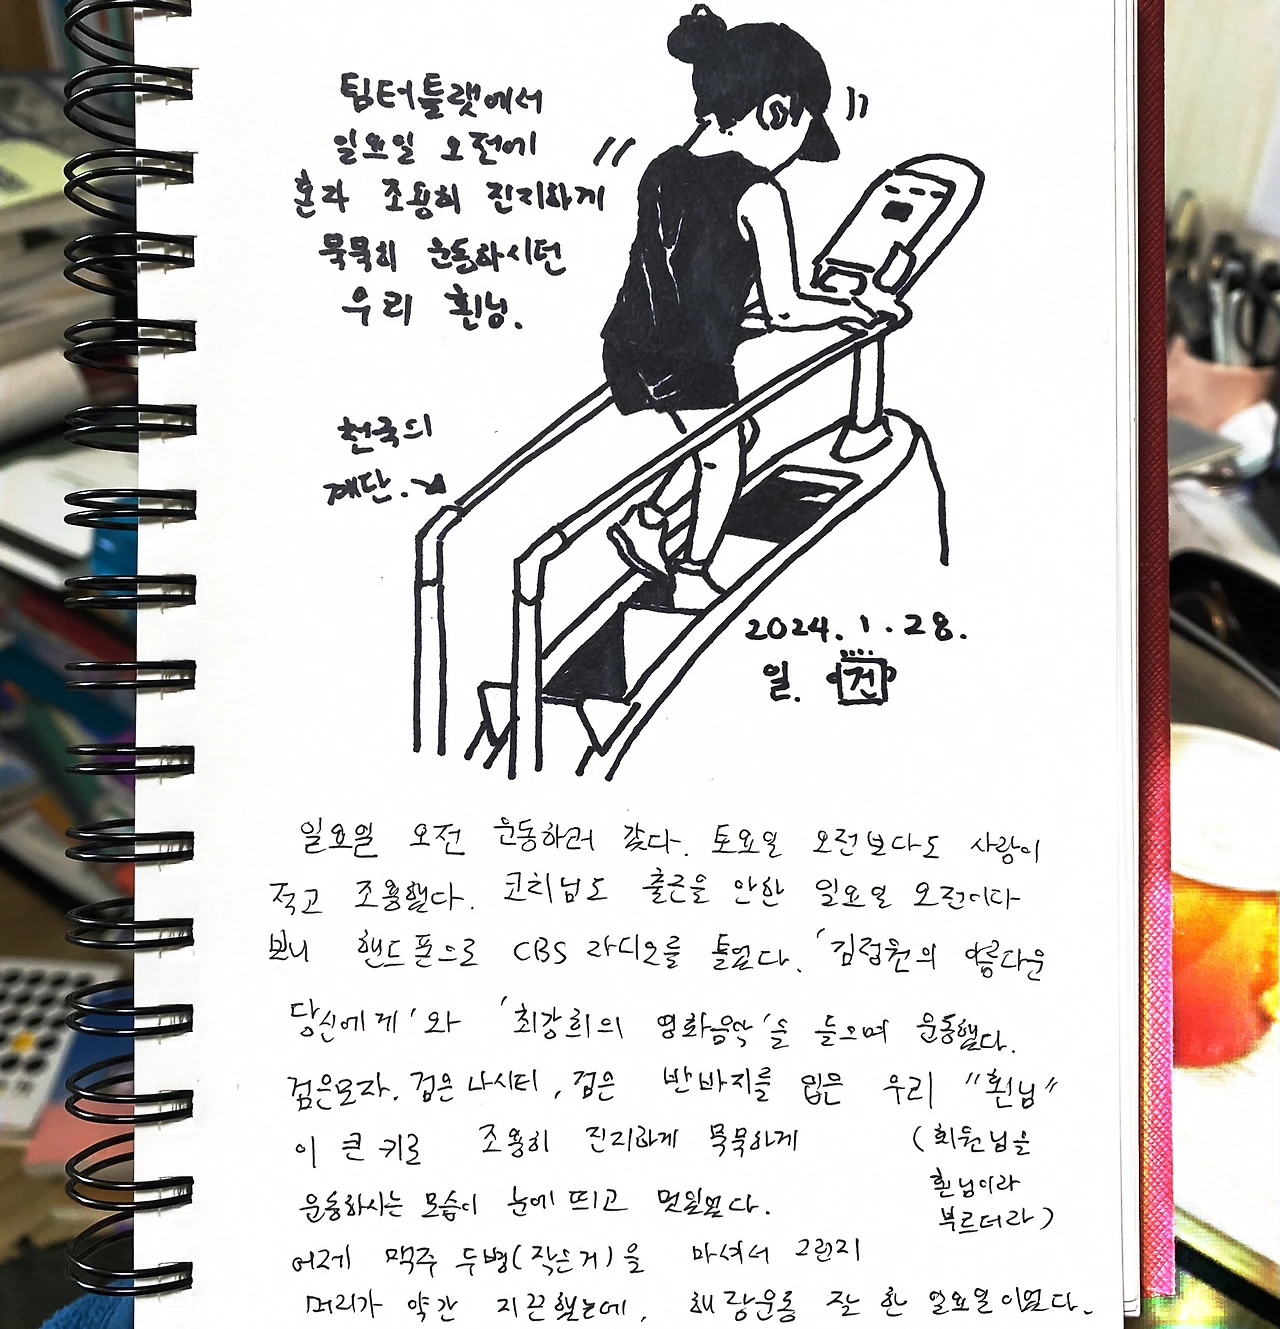 팀터틀랫에서
일요일 오전에
혼자 조용히 진지하게
묵묵히 운동하시던
우리 횐님.
천국의
계단.
2024.1.28.
일. 건
일요일 오전 운동하러 갔다. 토요일 오전보다도 사람이
적고 조용했다. 코치님도 출근을 안한 일요일 오전이다
보니 핸드폰으로 CBS 라디오를 틀었다. '김정원의 아름다운
당신에게'와 '최강희의 영화음악'을 들으며 운동했다.
검은모자. 검은 나시티, 검은 반바지를 입은 우리 "횐님"
이 큰 키로 조용히 진지하게 묵묵하게
(회원님을
횐님이라
부르더라)
운동하시는 모습이 눈에 띄고 멋있었다.
어제 맥주 두병(작은거)을 마셔서 그런지
머리가 약간 지끈했는데, 해장운동 잘 한 일요일이었다.